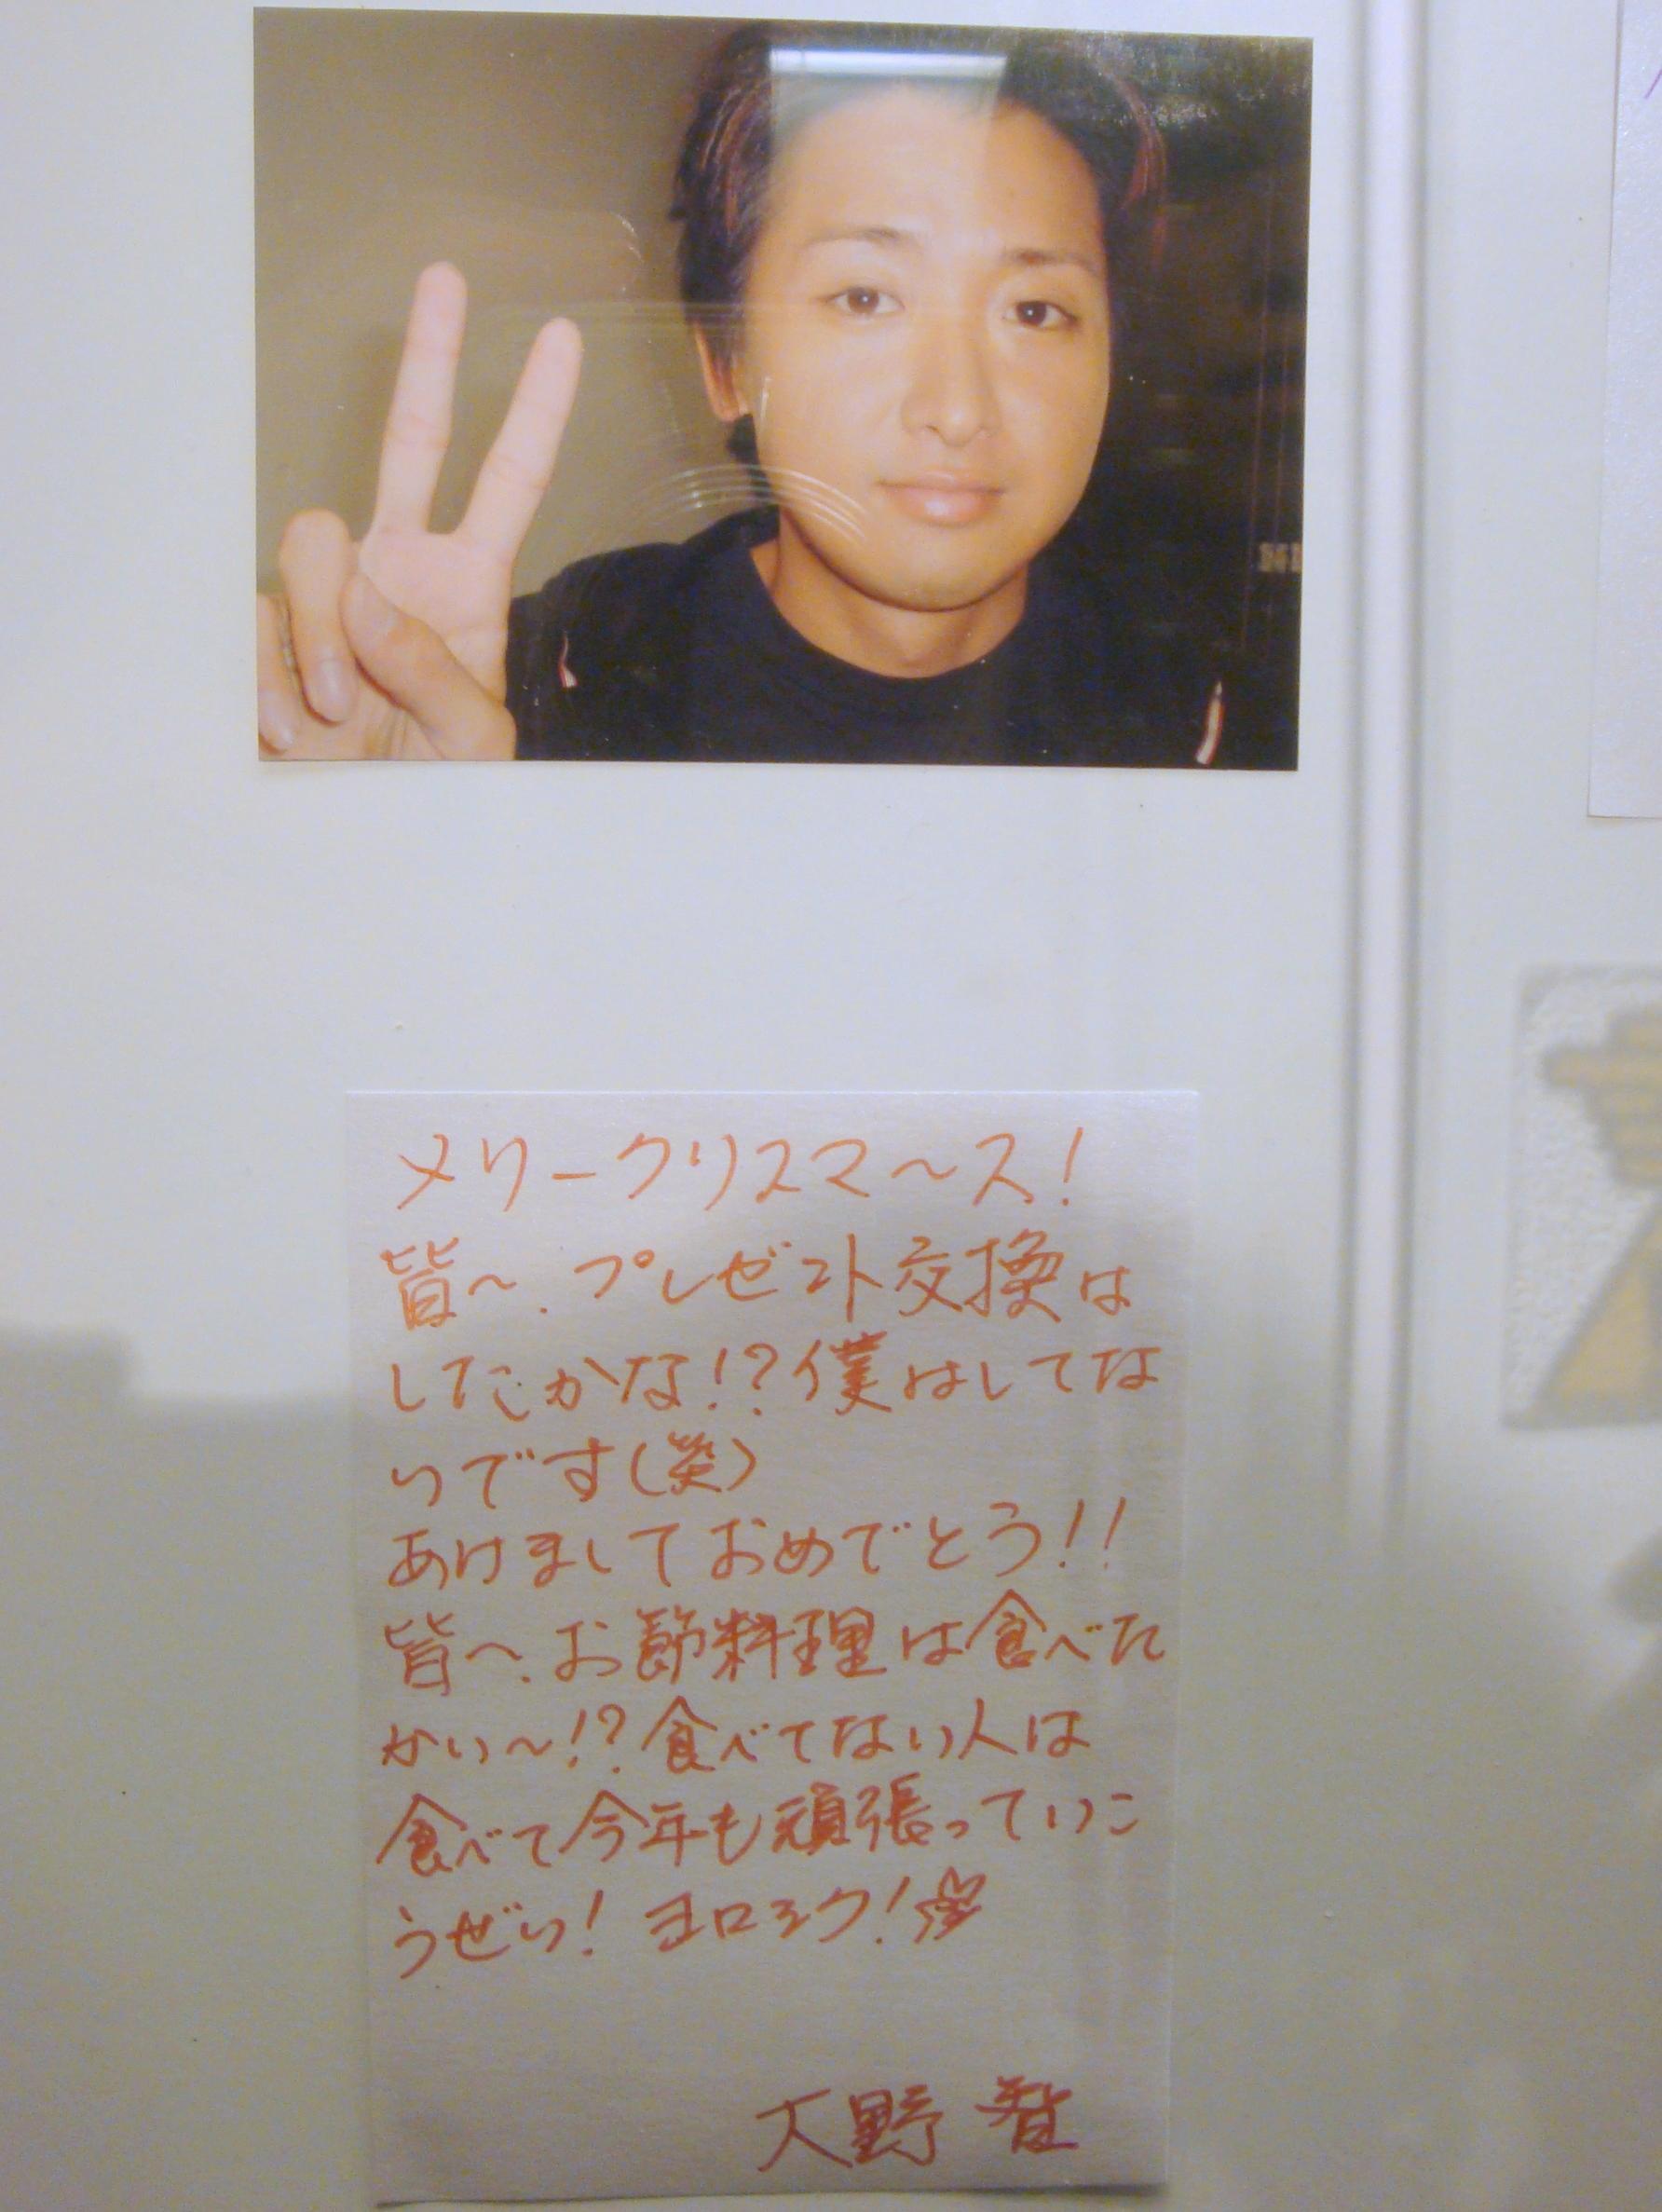 メリークリスマ〜ス!
皆〜、プレゼント交換は
したかな!?僕はしてな
いです(笑)
あけましておめでとう!!
皆〜、お節料理は食べた
かい〜!?食べてない人は
食べて今年も頑張っていこ
うぜい!ヨロシク!
大野 智